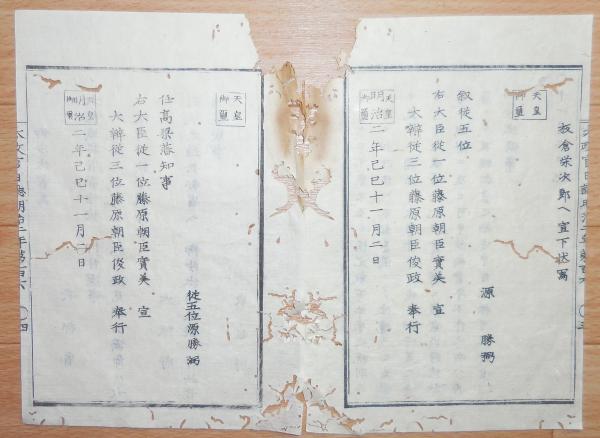 板倉栄次郎ヘ宣下状寫
源 勝弼
天皇御璽
叙従五位
右大臣従一位藤原朝臣實美 宣
大辨従三位藤原朝臣俊政 奉行
天皇御璽
明治二年己巳十一月二日
従五位源勝弼
天皇御璽
任高梁藩知事
右大臣従一位藤原朝臣實美 宣
大辨従三位藤原朝臣俊政 奉行
天皇御璽
明治二年己巳十一月二日
太政官日誌明治二年第百六 〇四